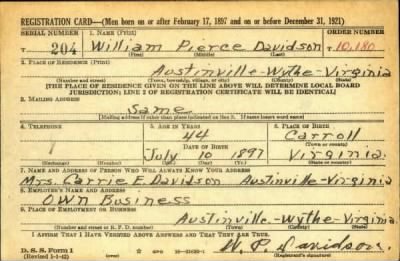 REGISTRATION CARD—(Men born on or after February 17, 1897 and on or before December 31, 1921)
SERIAL NUMBER 1. NAME (Print) ORDER NUMBER
T 204 William Pierce Davidson T 10,180
2. PLACE OF RESIDENCE (Print)
Austinville-Wythe-Virginia
(Number and street) (Town, township, village, or city) (County) (State)
[THE PLACE OF RESIDENCE GIVEN ON THE LINE ABOVE WILL DETERMINE LOCAL BOARD
JURISDICTION; LINE 2 OF REGISTRATION CERTIFICATE WILL BE IDENTICAL]
3. MAILING ADDRESS
Same
[Mailing address if other than place indicated on line 2. If same insert word same]
4. TELEPHONE 5. AGE IN YEARS 6. PLACE OF BIRTH
44 Carroll
DATE OF BIRTH (Town or county)
July 10 1897 Virginia
(Exchange) (Number) (Mo.) (Day) (Yr.) (State or country)
7. NAME AND ADDRESS OF PERSON WHO WILL ALWAYS KNOW YOUR ADDRESS
Mrs. Carrie E. Davidson Austinville-Virginia
8. EMPLOYER'S NAME AND ADDRESS
Own Business
9. PLACE OF EMPLOYMENT OR BUSINESS
Austinville-Wythe-Virginia.
(Number and street or R. F. D. number) (Town) (County) (State)
I AFFIRM THAT I HAVE VERIFIED ABOVE ANSWERS AND THAT THEY ARE TRUE.
D. S. S. Form 1 W. P. Davidson.
(Revised 1-1-42) (over) (Registrant's signature)